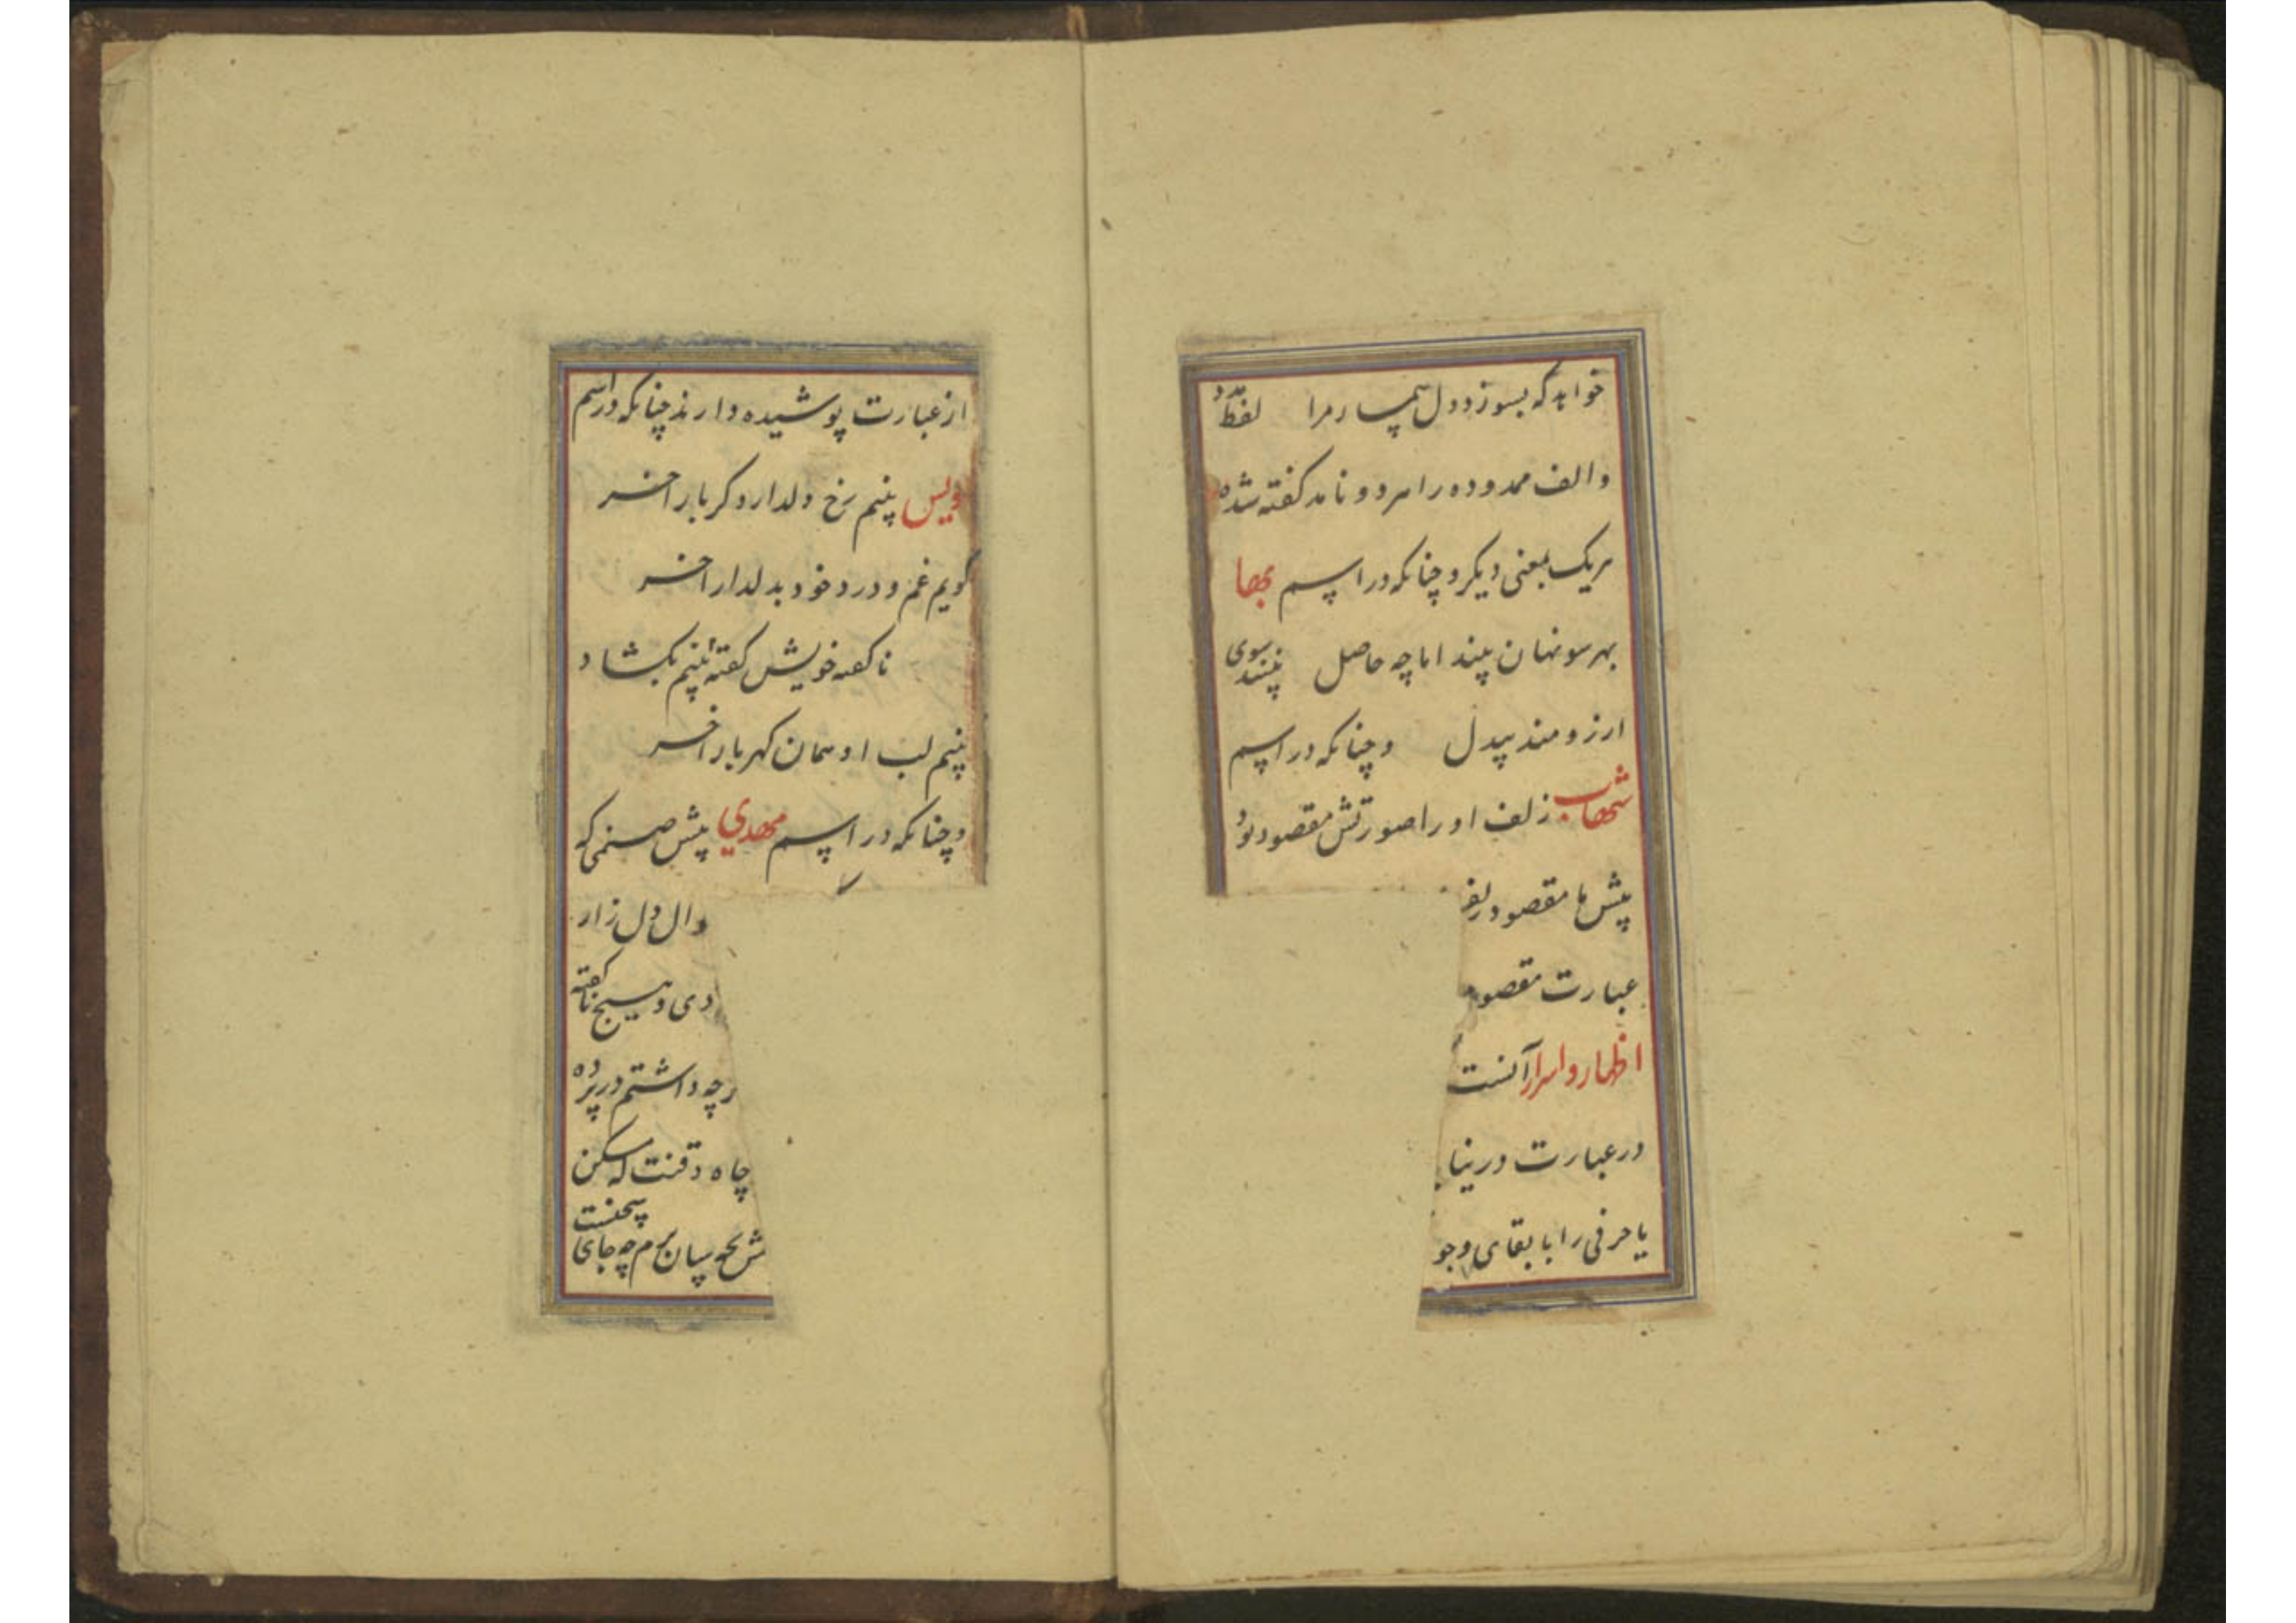 خواهد که بسوزد دل بیمار مرا لفظ درد
والف ممدوده را سرد و نامد گفته شده
هریک بمعنی دیگر و چنانکه در اسم بها
بهر سو نهان بیند اما چه حاصل نبیند سوی
ارزومند بیدل و چنانکه در اسم
شهاب زلف او را صورتش مقصود بود
پیش ما مقصود زلف
عبارت مقصود
اظهار و اسرار آنست
در عبارت در نیا
یا حرفی را با بقای وجو
از عبارت پوشیده دارند چنانکه در اسم
ویس بینم رخ دلدار دگر بار اخر
گویم غم و درد خود بدلدار اخر
ناگفته خویش گفته بینم بگشاد
بینم لب او همان گهربار اخر
و چنانکه در اسم مهدی پیش صنمی که
دال دل زار
دی و هیچ ناگفته
رچه داشتم در پرده
چاه ذقنت که مسکن
شرحه بیان برم چه جای سخنست